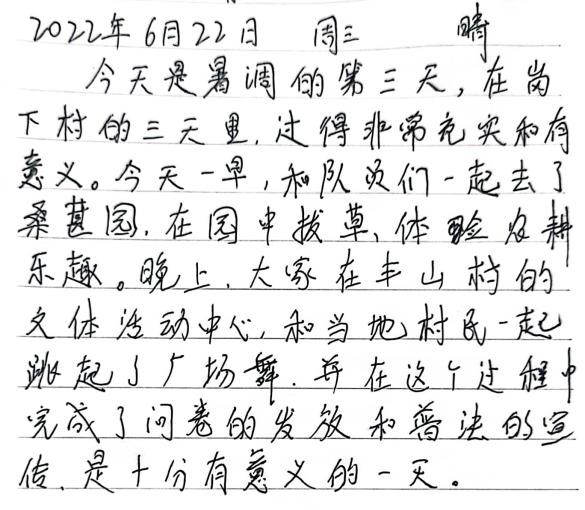 2022年6月22日 周三 晴
今天是暑调的第三天,在岗
下村的三天里,过得非常充实和有
意义。今天一早,和队员们一起去了
桑葚园,在园中拔草,体验农耕
乐趣。晚上,大家在丰山村的
文体活动中心,和当地村民一起
跳起了广场舞,并在这个过程中
完成了问卷的发放和普法的宣
传,是十分有意义的一天。